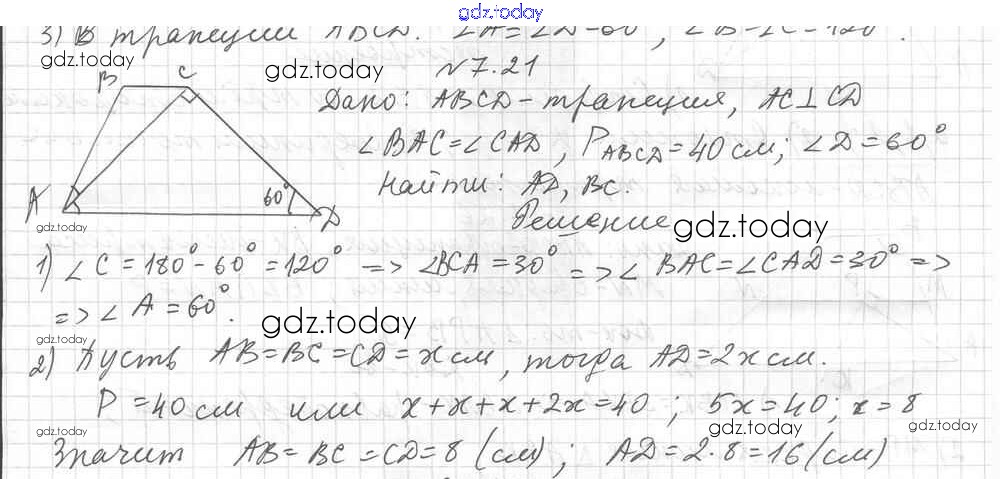 gdz.today
3) В трапеции ABCD. ∠A=∠D=60°, ∠B=∠C=120°.
gdz.today
gdz.today
№7.21
B C
Дано: ABCD - трапеция, AC⊥CD
gdz.today
∠BAC=∠CAD, P_ABCD=40 см; ∠D=60°
Найти: AD, BC.
A 60° D
Решение
gdz.today
1) ∠C=180°-60°=120° => ∠BCA=30° => ∠BAC=∠CAD=30° =>
=> ∠A=60°.
gdz.today
gdz.today
2) Пусть AB=BC=CD=x см, тогда AD=2x см.
gdz.today
P=40 см или x+x+x+2x=40; 5x=40; x=8
gdz.today gdz.today gdz.today
Значит AB=BC=CD=8 (см); AD=2·8=16 (см)